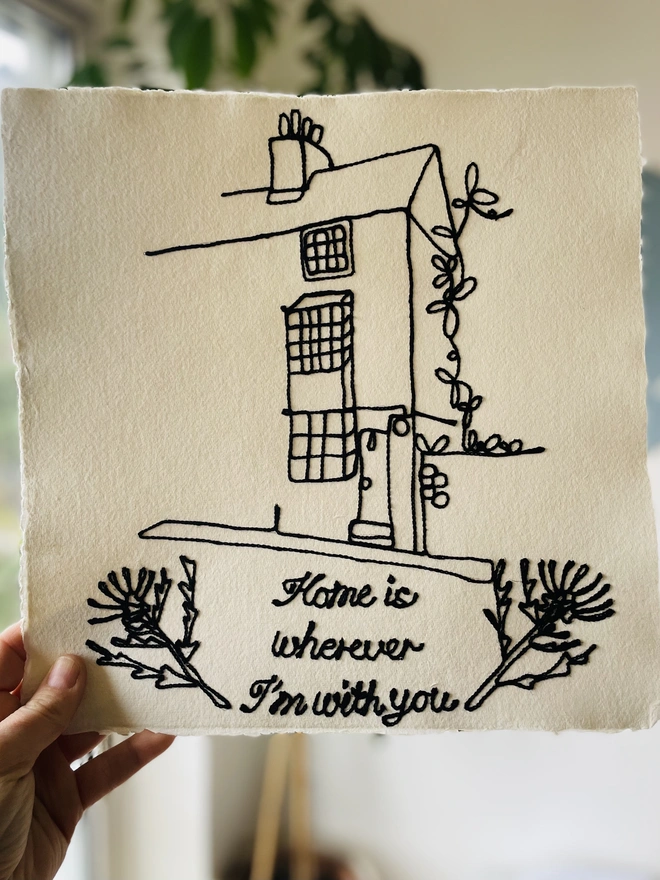 Home is
wherever
I'm with you